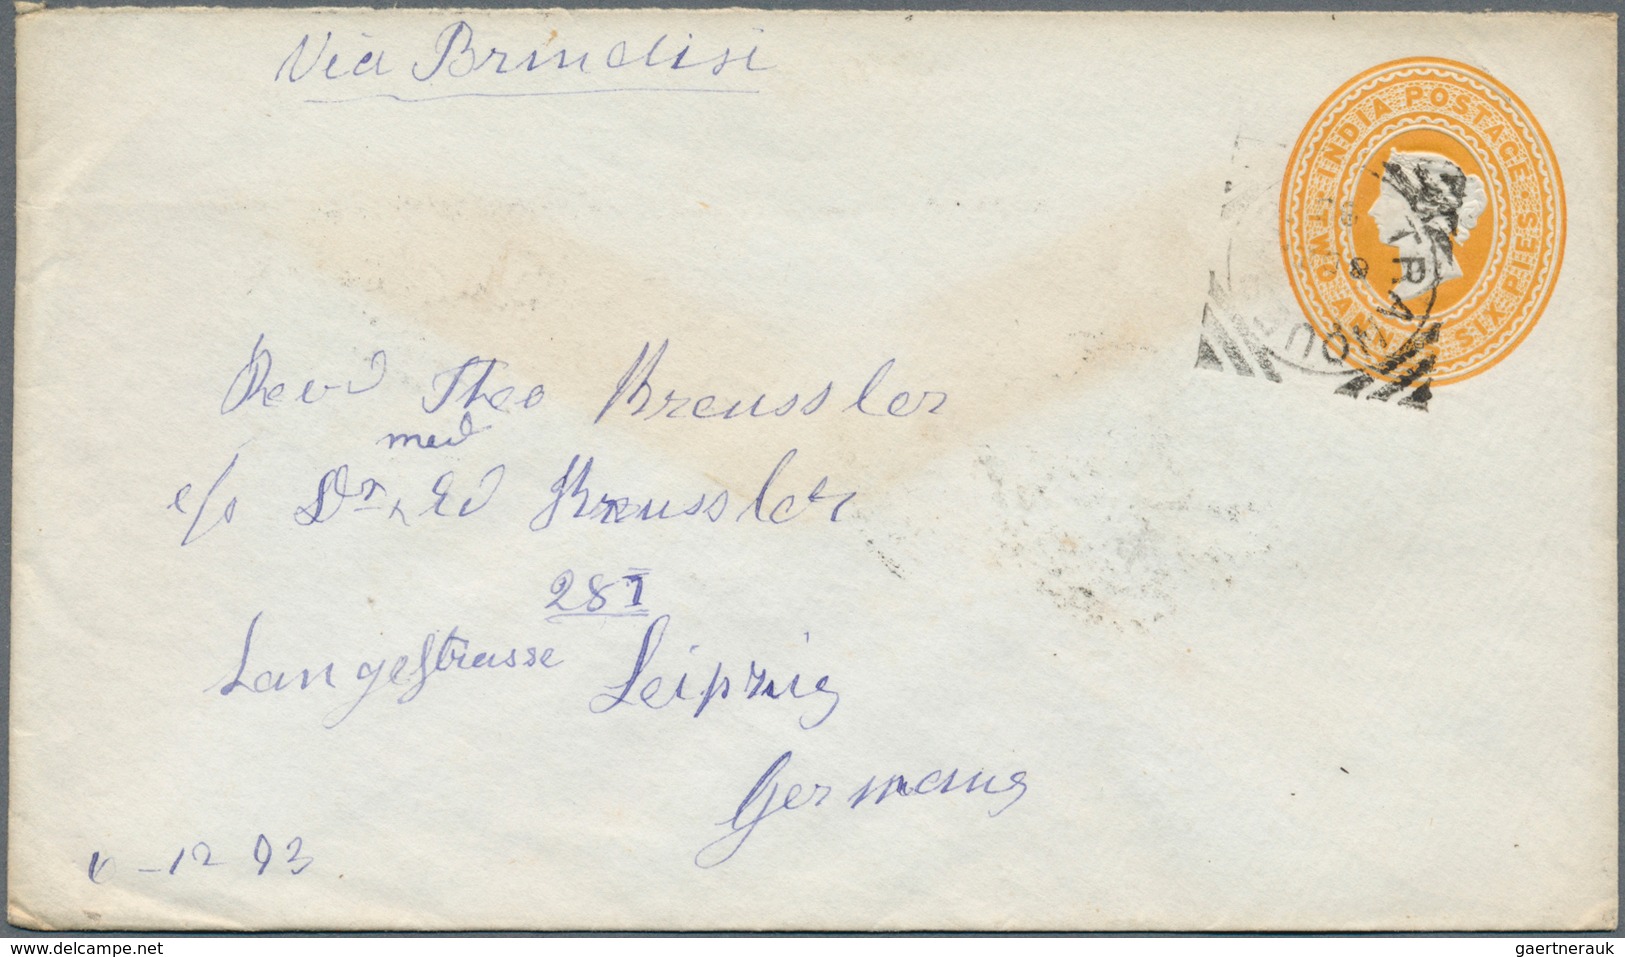 Via Brindisi
INDIA POSTAGE
TWO ANNAS SIX PIES
TRANQU
Revd Theo Kreussler
med
c/o Dr Ed Kreussler
28 I
Langestrasse Leipzig
Germany
6-12 93
www.delcampe.net
gaertnerauk